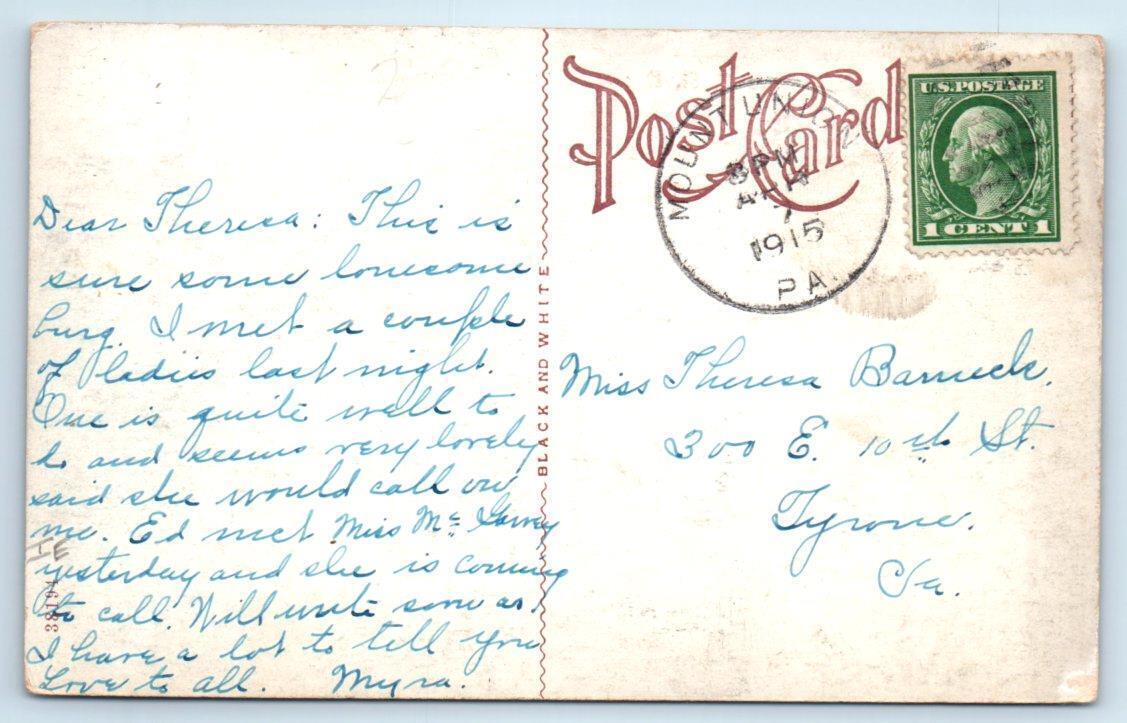 Post Card
U.S. POSTAGE
1 CENT 1
MOUNT UNION
8 PM
APR
7
1915
PA.
BLACK AND WHITE
38194
Dear Theresa: This is
sure some lonesome
burg. I met a couple
of ladies last night.
One is quite well to
do and seems very lovely
said she would call on
me. Ed met Miss Mc Garvey
yesterday and she is coming
to call. Will write soon as
I have a lot to tell you
Love to all. Myra.
Miss Theresa
300 E. 10th St.
Tyrone.
Pa.